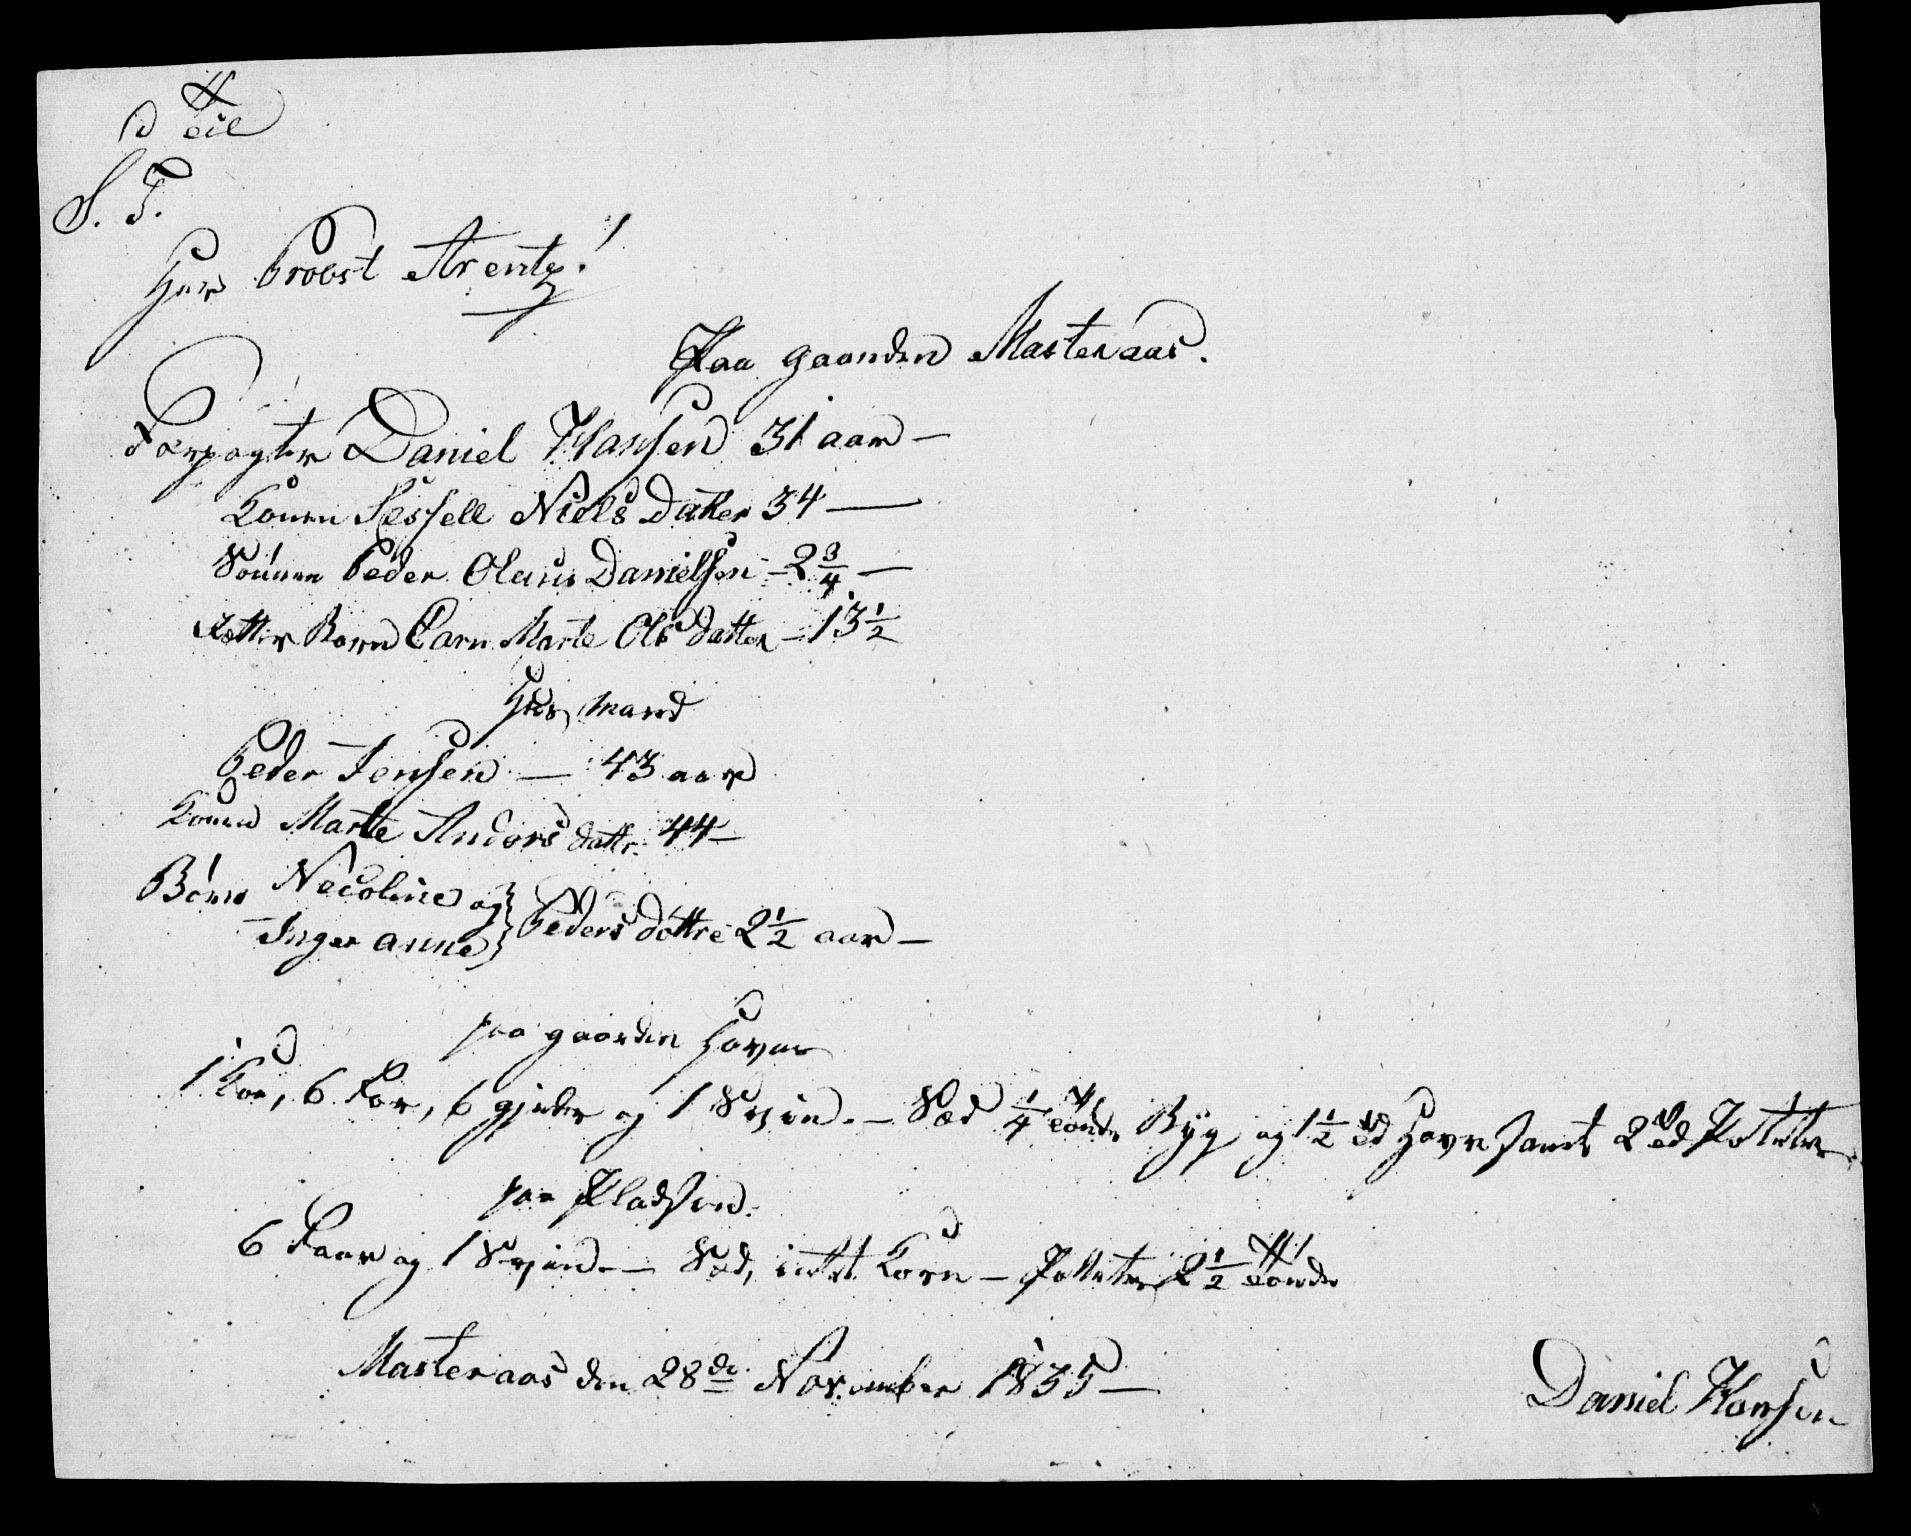 Til
S. T.
Herr Probst Arentz!
Paa gaarden Masteraas.
Forpagter Daniel Hansen 31 aar —
Konen Sessell Niels Datter 34 —
Sønnen Peder Olaus Danielsen — 2 3/4 —
Barn Caren Marte Ols datter — 13 1/2
Huusmand
Peder Jensen — 43 aar
Konen Marte Anders dattr. 44 —
Børn Necoline og } Peders døttre 2 1/2 aar —
Inger anne }
paa gaarden
1 Koe, 6 Faar, 6 gjeder og 1 Sviin. — Sæd 1/4 tønde Byg og 1 1/2 td Havre samt 2 td Poteter
paa Pladsen.
6 Faar og 1 Sviin. — Sæd, intet Korn — Potteter 2 1/2 tønde
Masteraas den 28de November 1835 —
Daniel Hansen